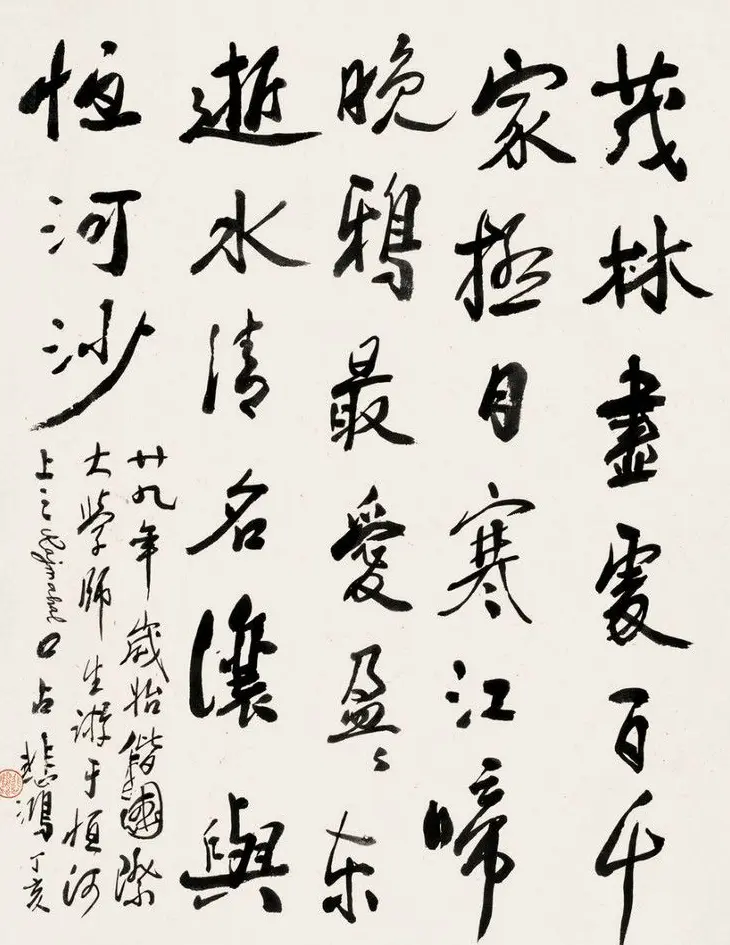 茂林盡處百千
家極目寒江啼
晚鴉最愛盈〻東
逝水清名讓與
恒河沙
廿九年歲始偕國際
大學師生游于恒河
上之Rajmahal口占悲鴻丁亥